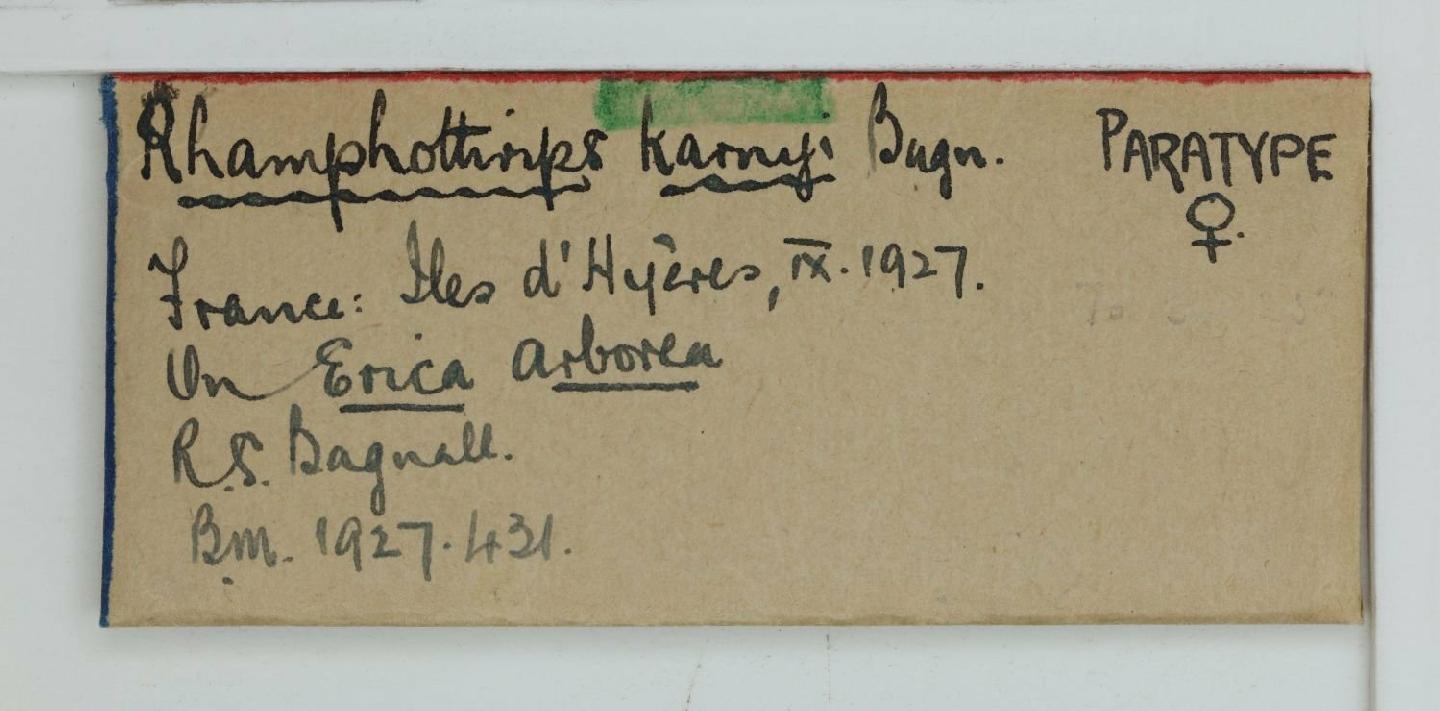 Rhamphothrips karnyi Bagn. PARATYPE
♀.
France: Iles d'Hyères, IX. 1927.
On Erica arborea
R.S. Bagnall.
B.M. 1927.431.